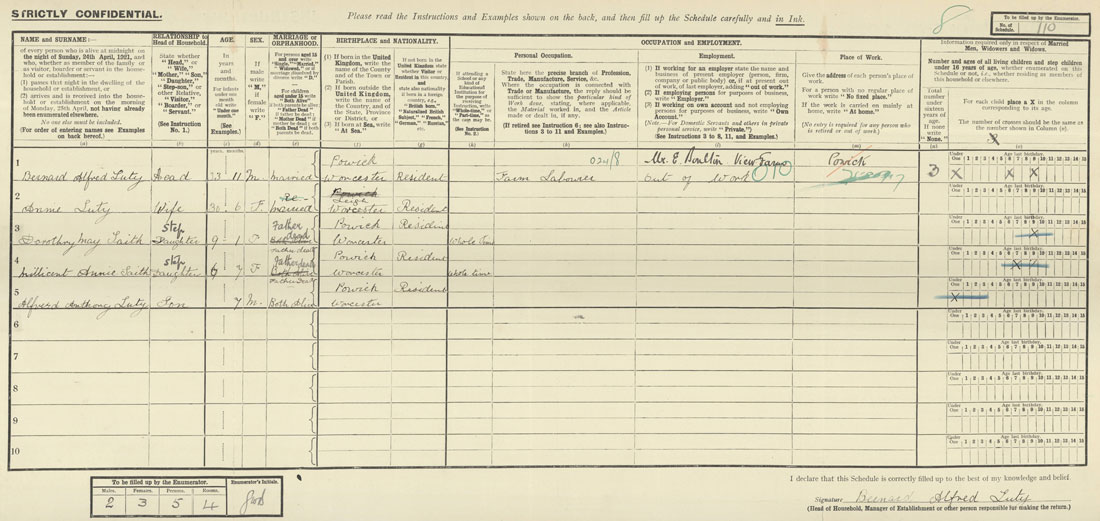 STRICTLY CONFIDENTIAL.
Please read the Instructions and Examples shown on the back, and then fill up the Schedule carefully and in Ink.
8
To be filled up by the Enumerator.
No. of Schedule. 110
NAME and SURNAME:—
of every person who is alive at midnight on
the night of Sunday, 24th April, 1921, and
who, whether as member of the family or
as visitor, boarder or servant to the house-
hold or establishment:—
(1) passes that night in the dwelling of the
household or establishment, or
(2) arrives and is received into the house-
hold or establishment on the morning
of Monday, 25th April, not having already
been enumerated elsewhere.
No one else must be included.
(For order of entering names see Examples
on back hereof.)
(a)
RELATIONSHIP to
Head of Household.
State whether
"Head," or
"Wife,"
"Mother," "Son,"
"Daughter,"
"Step-son," or
other Relative,
"Visitor,"
"Boarder," or
"Servant."
(See Instruction
No. 1.)
(b)
AGE.
In
years
and
months.
For infants
under one
month
write
"Under one
month."
(See
Examples.)
(c)
SEX.
If
male
write
"M,"
if
female
write
"F."
(d)
MARRIAGE or
ORPHANHOOD.
For persons aged 15
and over write
"Single," "Married,"
"Widowed," or if
marriage dissolved by
divorce write "D."
For children
aged under 15 write
"Both Alive"
"Father Dead"
"Mother Dead"
"Both Dead"
(e)
BIRTHPLACE and NATIONALITY.
(1) If born in the United
Kingdom, write the
name of the County
and of the Town or
Parish.
(2) If born outside the
United Kingdom,
write the name of
the Country, and of
the State, Province
or District, or
(3) If born at Sea, write
"At Sea."
(f)
If not born in the
United Kingdom state
whether Visitor or
Resident in this country
and
state also nationality
if born in a foreign
country, e.g.,
"British born,"
"Naturalised British
Subject," "French,"
"German," "Russian,"
etc.
(g)
OCCUPATION and EMPLOYMENT.
If attending a
School or any
kind of
Educational
Institution for
the purpose of
receiving
Instruction, write
"Whole-time," or
"Part-time," as
the case may be.
(See Instruction
No. 2.)
(h)
Personal Occupation.
State here the precise branch of Profession,
Trade, Manufacture, Service, &c.
Where the occupation is connected with
Trade or Manufacture, the reply should be
sufficient to show the particular kind of
Work done, stating, where applicable,
the Material worked in, and the Article
made or dealt in, if any.
(If retired see Instruction 6; see also Instruc-
tions 3 to 11 and Examples.)
(k)
Employment.
(1) If working for an employer state the name and
business of present employer (person, firm,
company or public body) or, if at present out
of work, of last employer, adding "out of work."
(2) If employing persons for purposes of business,
write "Employer."
(3) If working on own account and not employing
persons for purposes of business, write "Own
Account."
(Note.—For Domestic Servants and others in private
personal service, write "Private.")
(See Instructions 3 to 9, 11, and Examples.)
(l)
Place of Work.
Give the address of each person's place of
work.
For a person with no regular place of
work write "No fixed place."
If the work is carried on mainly at
home, write "At home."
(No entry is required for any person who
is retired or out of work.)
(m)
Information required only in respect of Married
Men, Widowers and Widows.
Number and ages of all living children and step children
under 16 years of age, whether enumerated on this
Schedule or not, i.e., whether residing as members of
this household or elsewhere.
Total
number
under
sixteen
years of
age.
If none
write
"None."
(n)
For each child place a X in the column
corresponding to its age.
The number of crosses should be the same as
the number shown in Column (n).
(o)
years. months.
Under One 1 2 3 4 5 6 7 8 9 10 11 12 13 14 15
Age last birthday.
1 Bernard Alfred Luty Head 33 11 M. Married Powick Worcester Resident Farm Labourer 024/8 Mr. E Moulton View Farm Out of Work Powick 3 X X X
2 Annie Luty Wife 30 6 F. Married Powick Leigh Worcester Resident
3 Dorothy May Saith Step Daughter 9 1 F Father dead Powick Worcester Resident Whole time X
4 Millicent Annie Saith Step Daughter 6 7 F Father dead Powick Worcester Resident Whole time X
5 Alfred Anthony Luty Son 7 M. Both Alive Powick Worcester Resident X
6
7
8
9
10
To be filled up by the Enumerator.
Males. Females. Persons. Rooms.
2 3 5 4
Enumerator's Initials.
I declare that this Schedule is correctly filled up to the best of my knowledge and belief.
Signature Bernard Alfred Luty
(Head of Household, Manager of Establishment or other person responsible for making the return.)